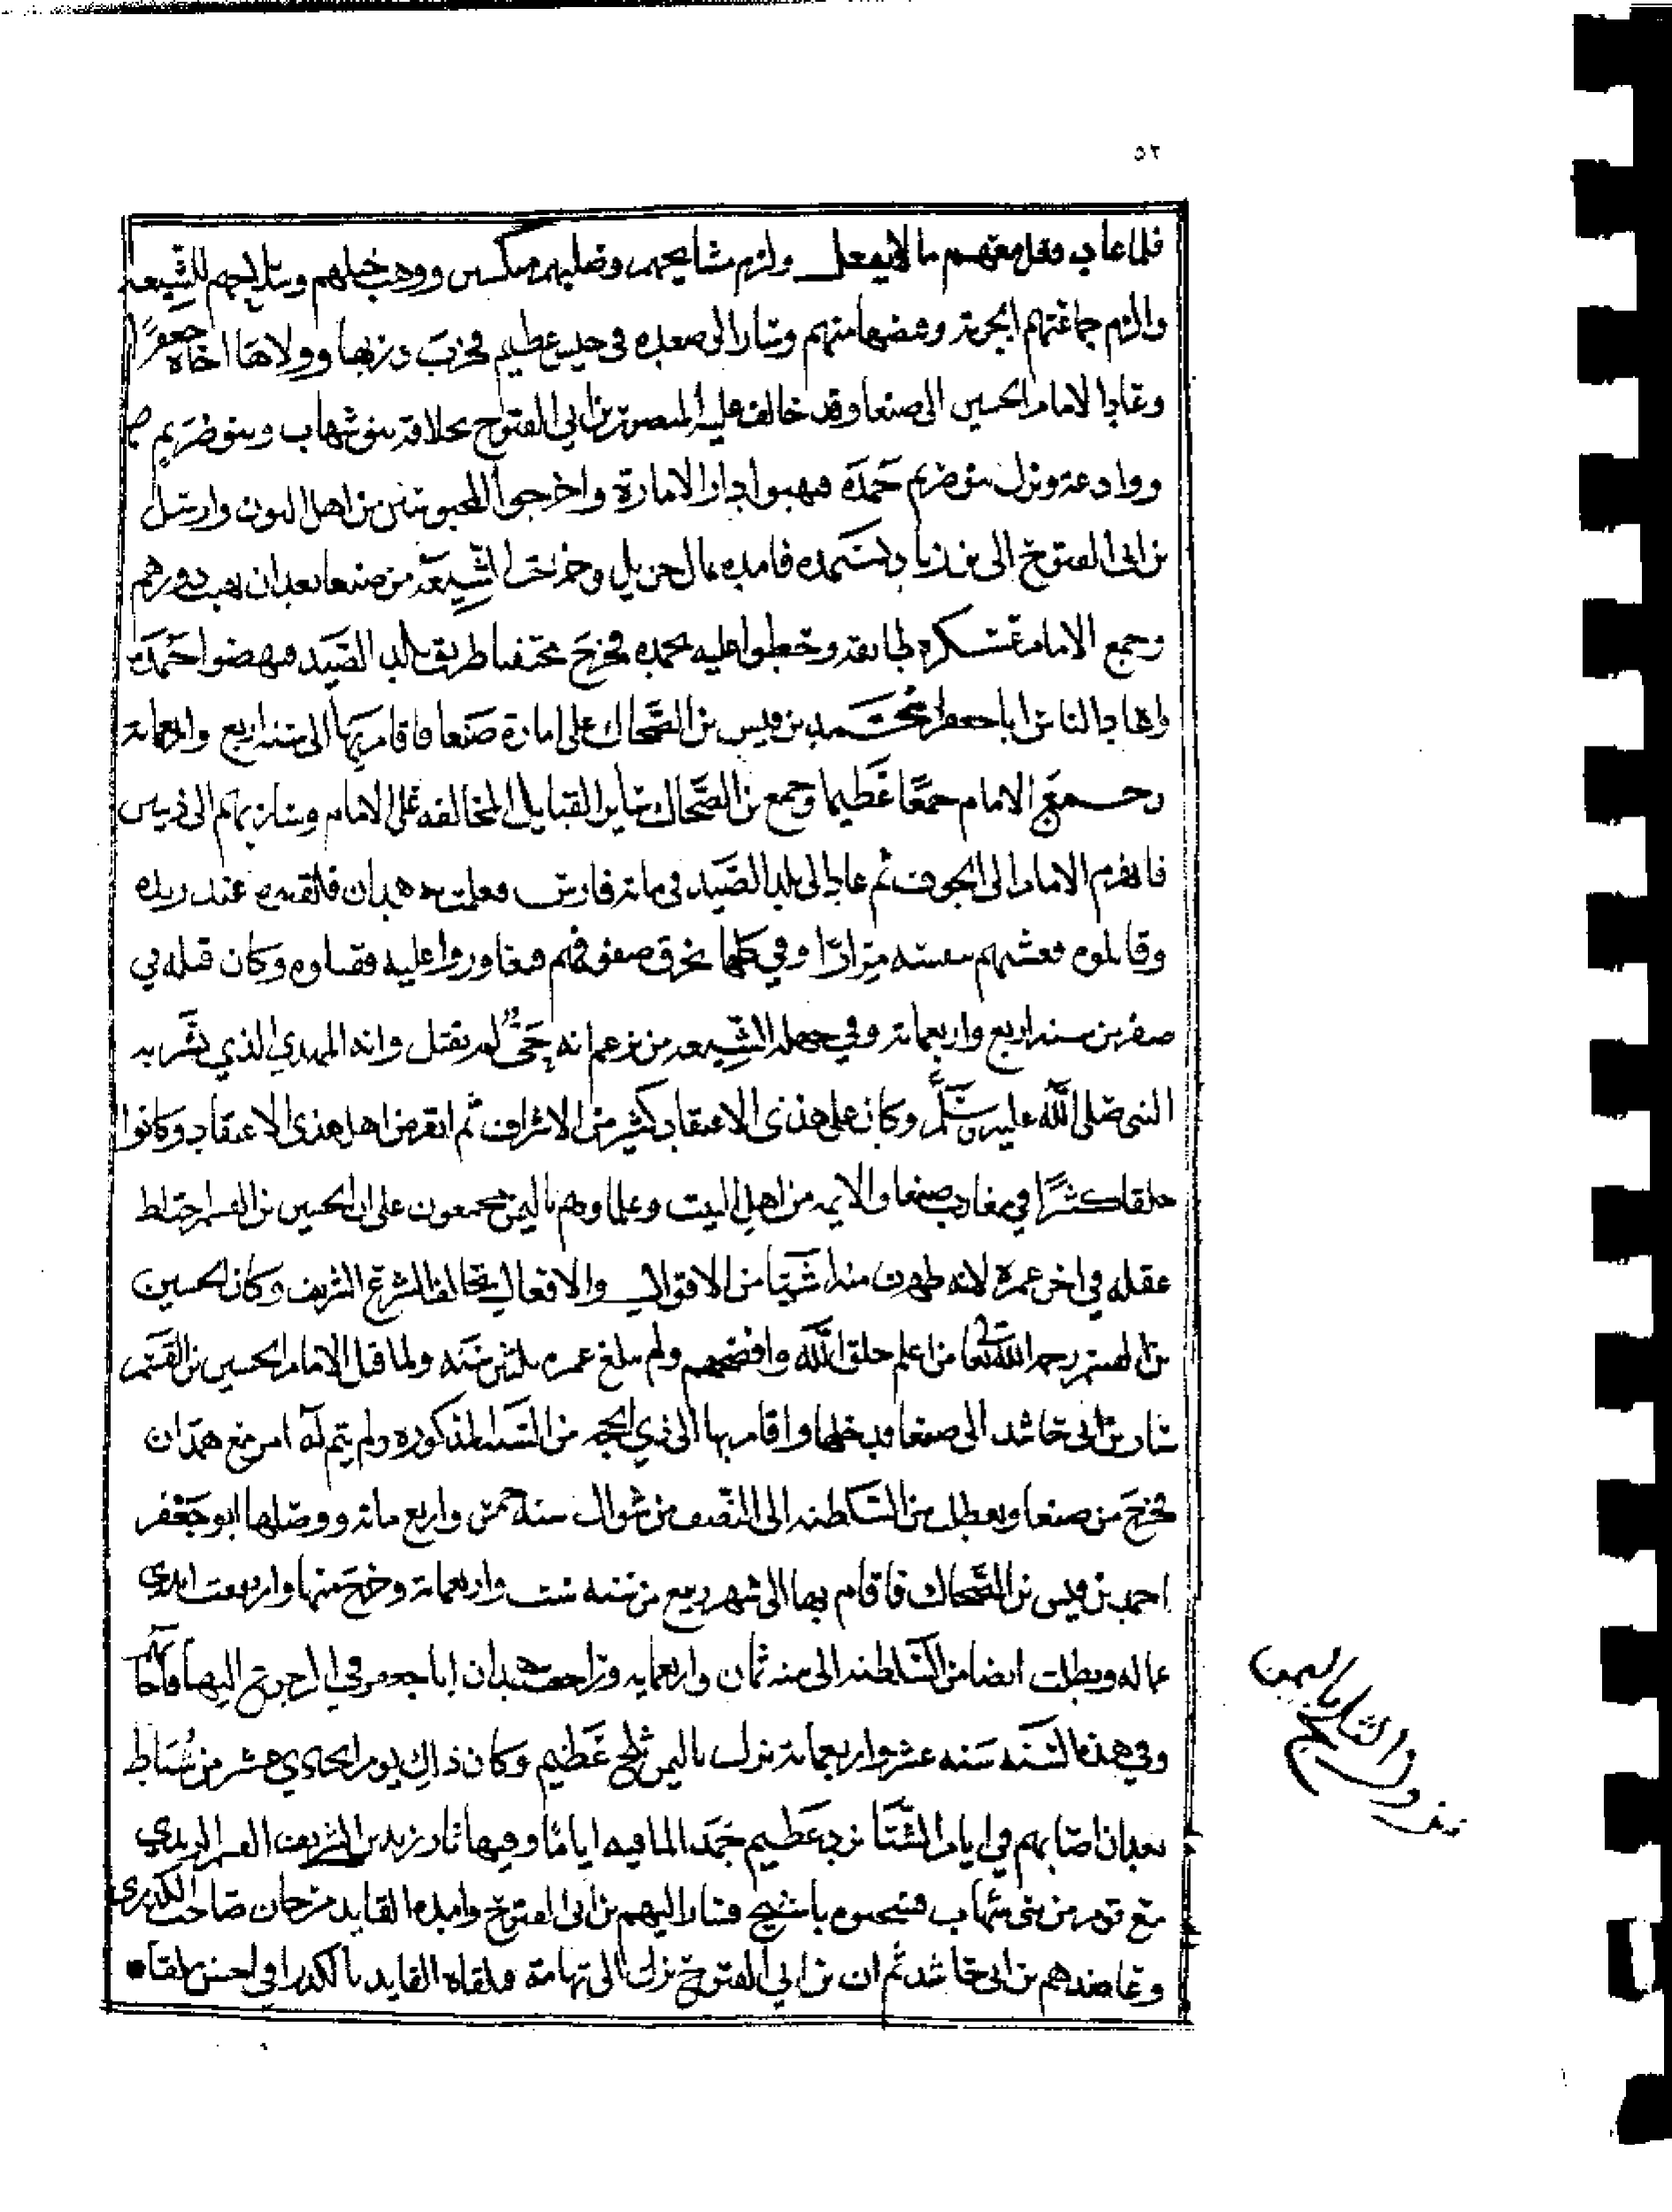 ٥٢
فلما عاد وفعل معهم ما لا يفعل ولزم مشايخهم وصلبهم منكسين ووهب خيلهم وسلاحهم للشيعه
والزم جماعتهم الجزية وقبضها منهم وسار الى صعده في جيش عظيم فخرب دربها وولاها اخاه جعفرًا
وعاد الامام الحسين الى صنعا وقد خالف عليه المنصور بن ابي الفتوح بعلاقة بنو شهاب وبنو ضريم
ووادعة ونزل بنو ضريم حَمدَه فهبوا دار الامارة واخرجوا المحبوسين من اهل البون وارسل
بن ابي الفتوح الى بن زياد يستمده فامده بمال جزيل وخرجت الشيعة من صنعا بعد ان نهبت دورهم
وجمع الامام عسكره وحطوا عليه بحمده فخرج مختفيا طريق بلد الصَّيَد فنهضوا حَمدَه
واعاد الناس ابا جعفر محمد بن قيس بن الضحاك على امارة صنعا فاقام بها الى سنة اربع واربعمائة
وجمع الامام جمعًا عَظيما وجمع بن الضحاك سائر القبايل المخالفه على الامام وسار بهم الى ذيبين
فانهزم الامام الى الجوف ثم عاد الى بلد الصَّيَد في مائة فارس وعلمت به همدان فلقيهم عند ريده
وقاتلوه فغشيهم بنفسه مِرارًا وفي كلها يخرق صفوفهم فتغاوروا عليه فقتلوه وكان قتله في
صفر من سنة اربع واربعمائة وفي جهلة الشيعه من يزعم انه حَيّ لم يقتل وانه المهدي الذي بشَّر به
النبي صلى الله عليه وسلم وكان على هذى الاعتقاد كثير من الاشراف ثم انقرض اهل هذى الاعتقاد وكانوا
خلقا كثيرًا في مغارب صنعا والايمه من اهل البيت وعلماوهم باليمن مجمعون على ان الحسين بن القسم اختلط
عقله في اخر عمره لانه ظهرت منه اشيَا من الاقوال والافعال تخالف الشرع الشريف وكان الحسين
بن القسم رحمه الله تعالى من اعلم خلق الله وافصحهم ولم يبلغ عمره ثلثين سَنه ولما قتل الامام الحسين بن القسم
سار بن ابي حاشد الى صنعا فدخلها واقام بها الى ذي الحجه من السَنه المذكوره ولم يتم له امر مع همدان
فخرج من صنعا وتعطل من السَلطنه الى النصف من شوال سنة خمس واربع مائه ووصلها ابو جعفر
احمد بن قيس بن الضحاك فاقام بها الى شهر ربيع من سنه ست واربعمائة وخرج منها وارتفعت ايدي
عماله وبطلت ايضا من السلطنه الى سنه ثمان واربعمايه وراجعت همدان ابا جعفر في الرجوع اليها
وفي هذه السَنَه سَنه عشر واربعمائة نزل باليمن ثلج عَظيم وكان ذلك يوم الحادي عشر من شُباط
بعد ان اصابهم في ايام الشتَا برد عَظيم جَمَد الما فيه ايامًا وفيها ثار زيد بن الشريف القسم الزيدي
مع قوم من بني شهاب فسار اليهم بن ابي الفتوح وامده القايد مرجان صاحب الكدرى
وعاضدهم بن ابي حاشد ثم ان بن ابي الفتوح نزل الى تهامة فلقاه القايد بالكدرا في احسن ملقا
نزول الثلج باليمن